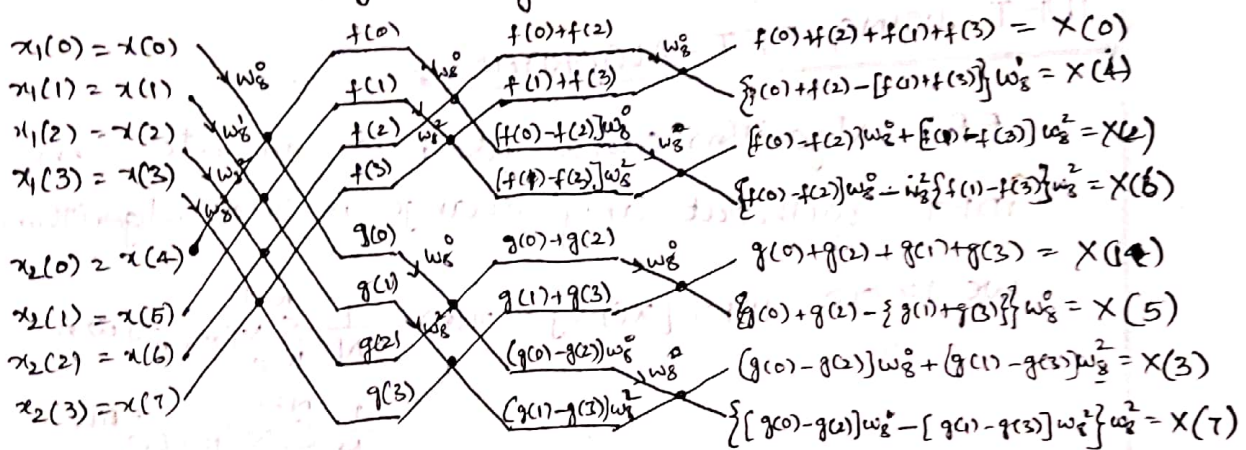 x₁(0) = x(0)
x₁(1) = x(1)
x₁(2) = x(2)
x₁(3) = x(3)
x₂(0) = x(4)
x₂(1) = x(5)
x₂(2) = x(6)
x₂(3) = x(7)
w₈⁰
w₈¹
w₈²
w₈
f(0)
f(1)
f(2)
f(3)
g(0)
g(1)
g(2)
g(3)
w₈⁰
w₈²
w₈⁰
w₈²
f(0)+f(2)
f(1)+f(3)
[f(0)-f(2)]w₈⁰
[f(1)-f(3)]w₈²
g(0)+g(2)
g(1)+g(3)
(g(0)-g(2))w₈⁰
(g(1)-g(3)]w₈²
w₈⁰
w₈⁰
w₈⁰
w₈⁰
f(0)+f(2)+f(1)+f(3) = X(0)
{f(0)+f(2)-[f(1)+f(3)]}w₈⁰ = X(4)
[f(0)-f(2)]w₈⁰+[f(1)-f(3)]w₈² = X(2)
{f(0)-f(2)]w₈⁰-w₈²{f(1)-f(3)}w₈² = X(6)
g(0)+g(2)+g(1)+g(3) = X(1)
{g(0)+g(2)-{g(1)+g(3)}}w₈⁰ = X(5)
(g(0)-g(2)]w₈⁰+(g(1)-g(3)]w₈² = X(3)
{[g(0)-g(2)]w₈⁰-[g(1)-g(3)]w₈²}w₈² = X(7)